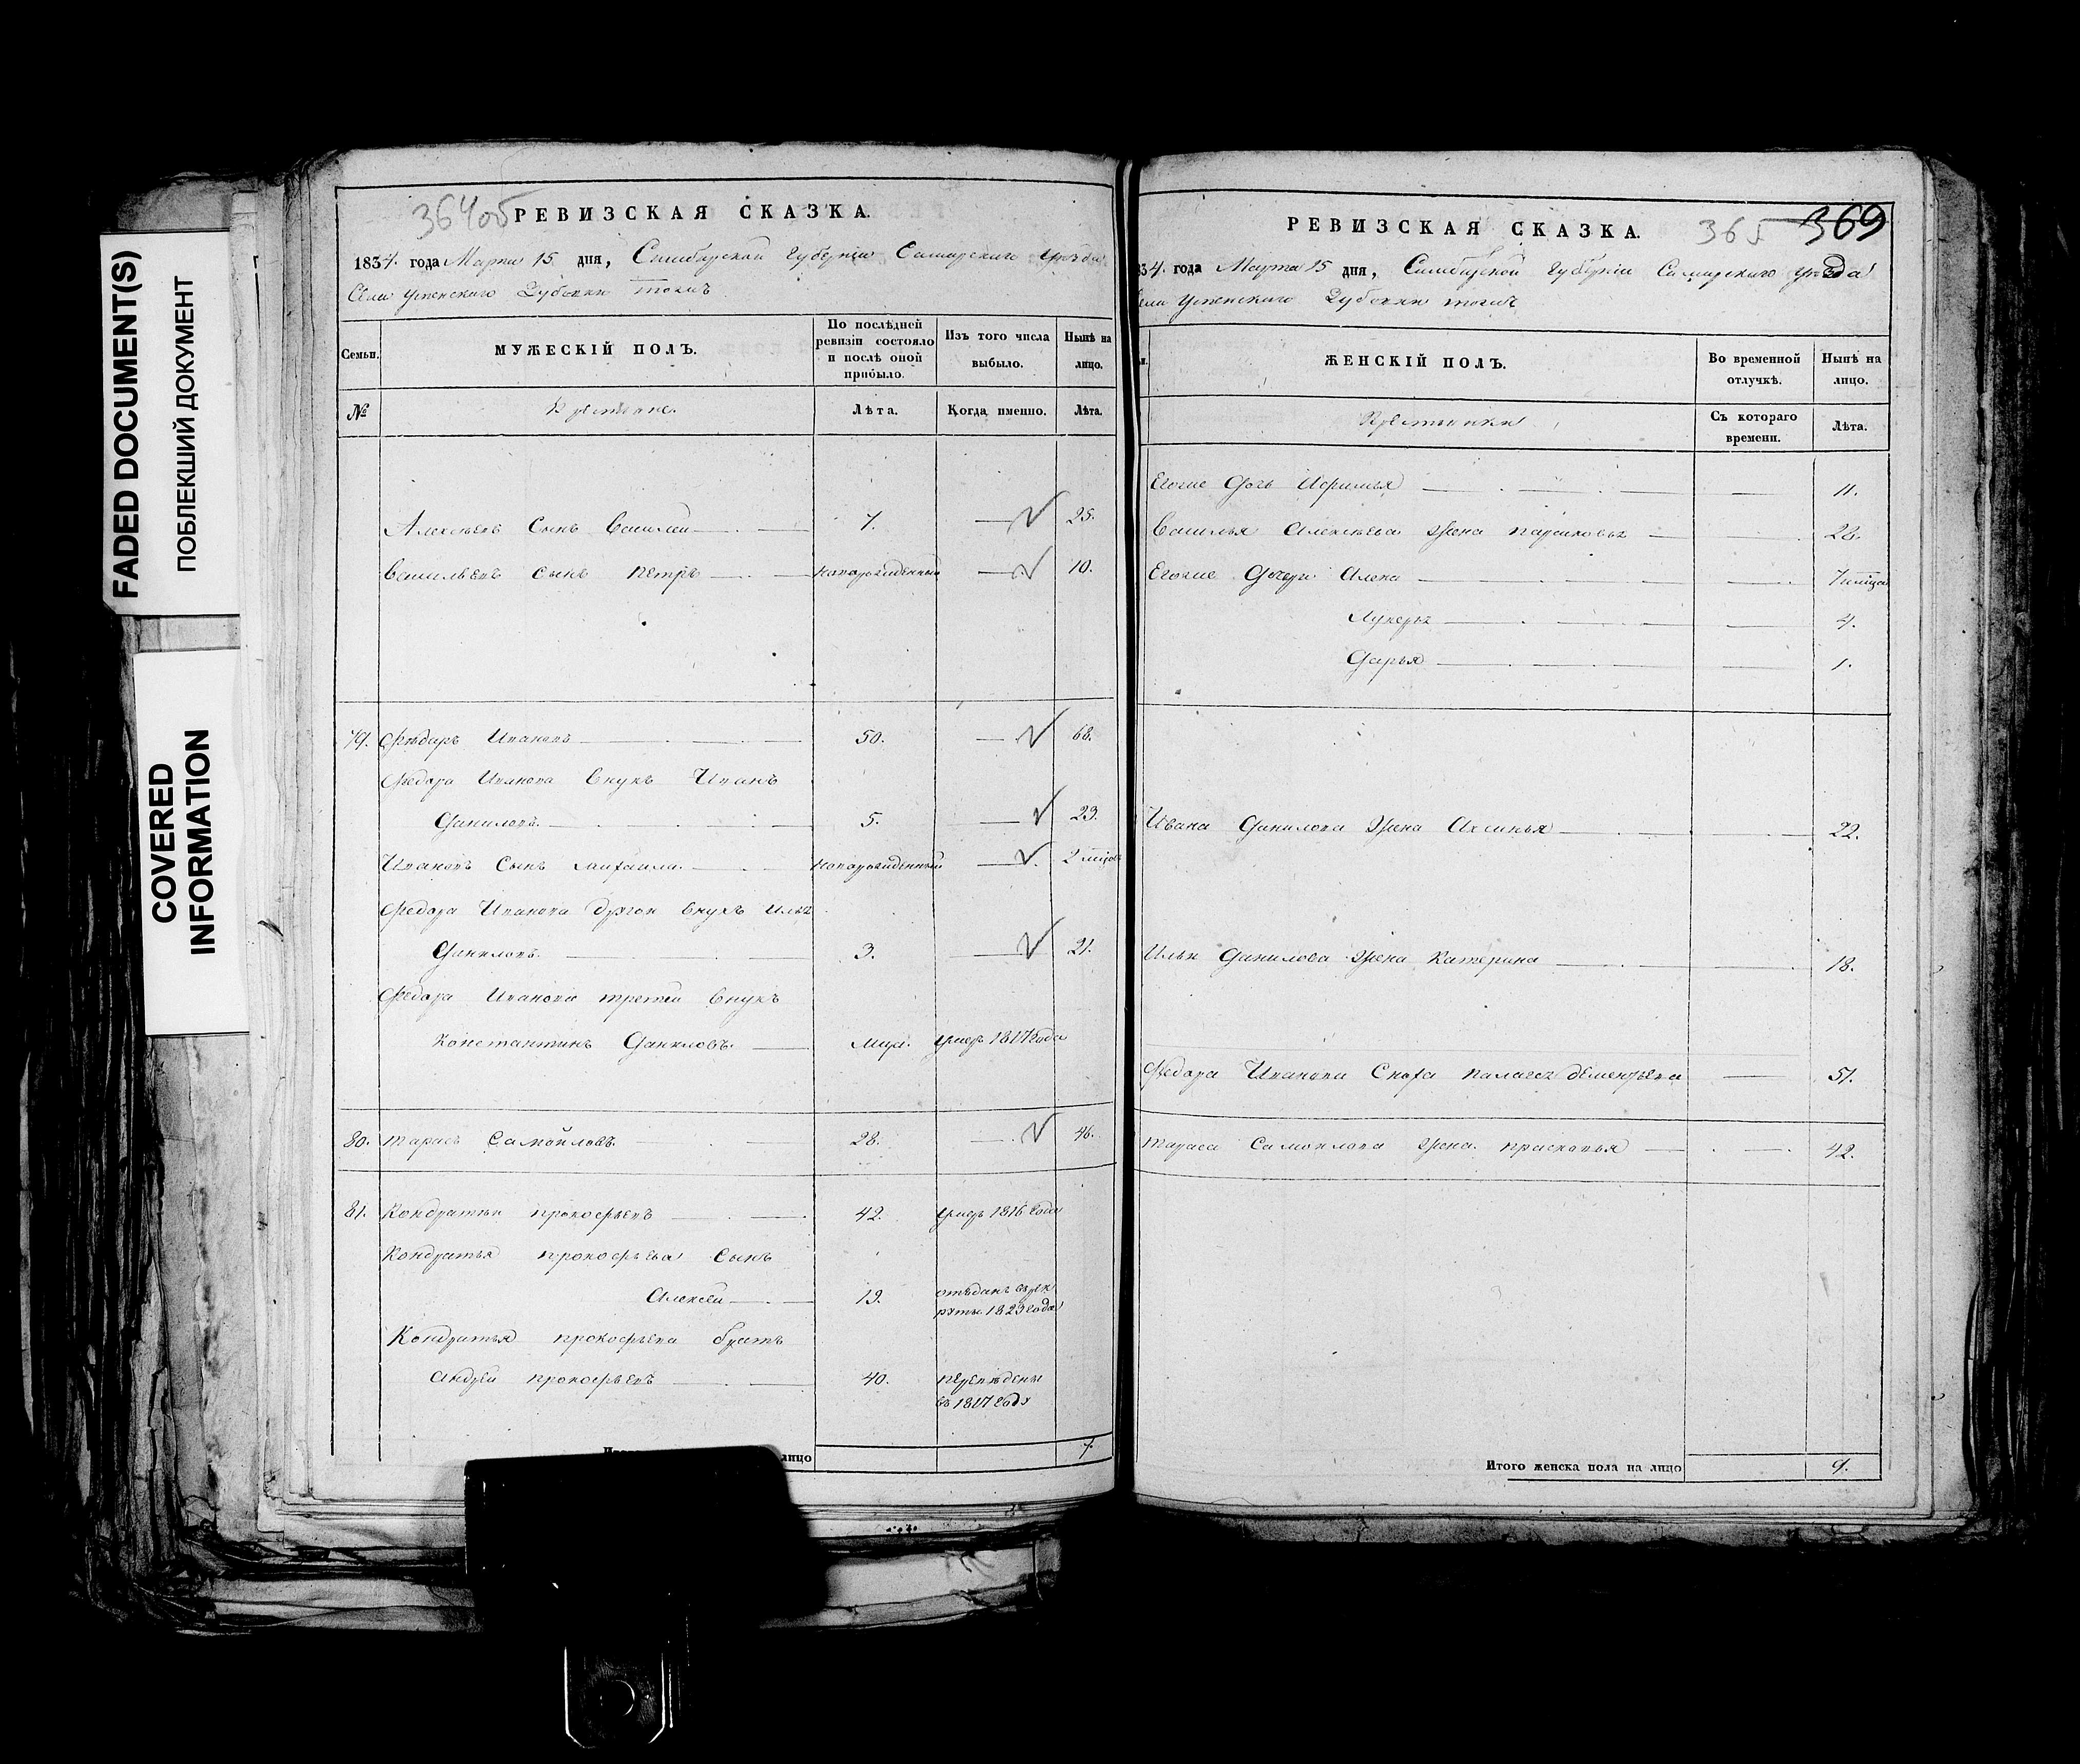 FADED DOCUMENT(S)
ПОБЛЕКШИЙ ДОКУМЕНТ
COVERED
INFORMATION
364об
РЕВИЗСКАЯ СКАЗКА.
1834. года Марта 15. дня, Симбирской Губернiи Самарскаго уѣзда
Села Успенскаго Дубовки тожъ
Семьи.
МУЖЕСКIЙ ПОЛЪ.
По послѣдней ревизiи состояло и послѣ оной прибыло.
Изъ того числа выбыло.
Нынѣ на лицо.
№
Крестьяне.
Лѣта.
Когда именно.
Лѣта.
Алексѣевъ сынъ Василей 7. 25.
Васильевъ сынъ Петръ новорожденный 10.
79. Фѣдаръ Ивановъ 50. 68.
Федора Иванова внукъ Иванъ
Даниловъ. 5. 23.
Ивановъ сынъ михаила. новорожденный 2 мѣсяцов
Федора Иванова другои внукъ Илья
Даниловъ. 3. 21.
Федора Иванова третеи внукъ
Константинъ Даниловъ. умеръ 1817 года
80. тарасъ Самойловъ. 28. 46.
81. Кондратеи прокофьевъ 42. умеръ 1816 года
Кондратья прокофьева сынъ
Алексеи 19. отъданъ врек
руты 1823 года
Кондратья прокофьева братъ
андреи прокофьевъ 40. перевѣдены
въ 1817 годя
лицо 7.
РЕВИЗСКАЯ СКАЗКА.
365 369
34. года Марта 15 дня, Симбирской Губернiи Самарскаго уѣзда
ела Успенскаго Дубовки тожъ
ЖЕНСКIЙ ПОЛЪ.
Во временной отлучкѣ.
Нынѣ на лицо.
Крестьянки
Съ котораго времени.
Лѣта.
Егоже дочь 11.
Василья Алексѣева жена 28.
Егоже дочери Алена 7
Лукерья 4.
Дарья 1.
Ивана Данилова жена Аксинья 22.
Ильи Данилова жена Катерина 18.
Федора Иванова сноха палагея дементьева 51.
тараса самоилова жена. прасковья 42.
Итого женска пола на лицо 9.